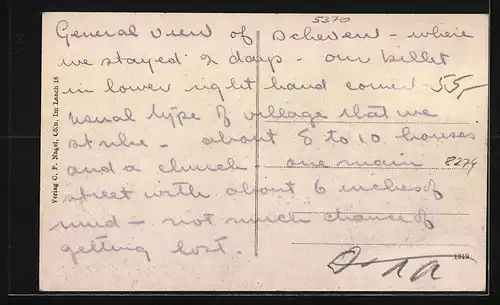 5370
General view of Scheven - where
we stayed 2 days - our billet
in lower right hand corner -
55,-
usual type of village that we
strike - about 8 to 10 houses
and a church - one main
8274
street with about 6 inches of
mud - not much chance of
getting lost.
1919
Verlag C. F. Nagel, Cöln, Im Laach 16